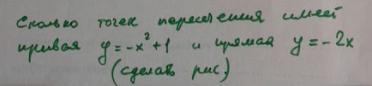 Сколько точек пересечения имеет
кривая y = -x² + 1 и прямая y = -2x
(сделать рис.)